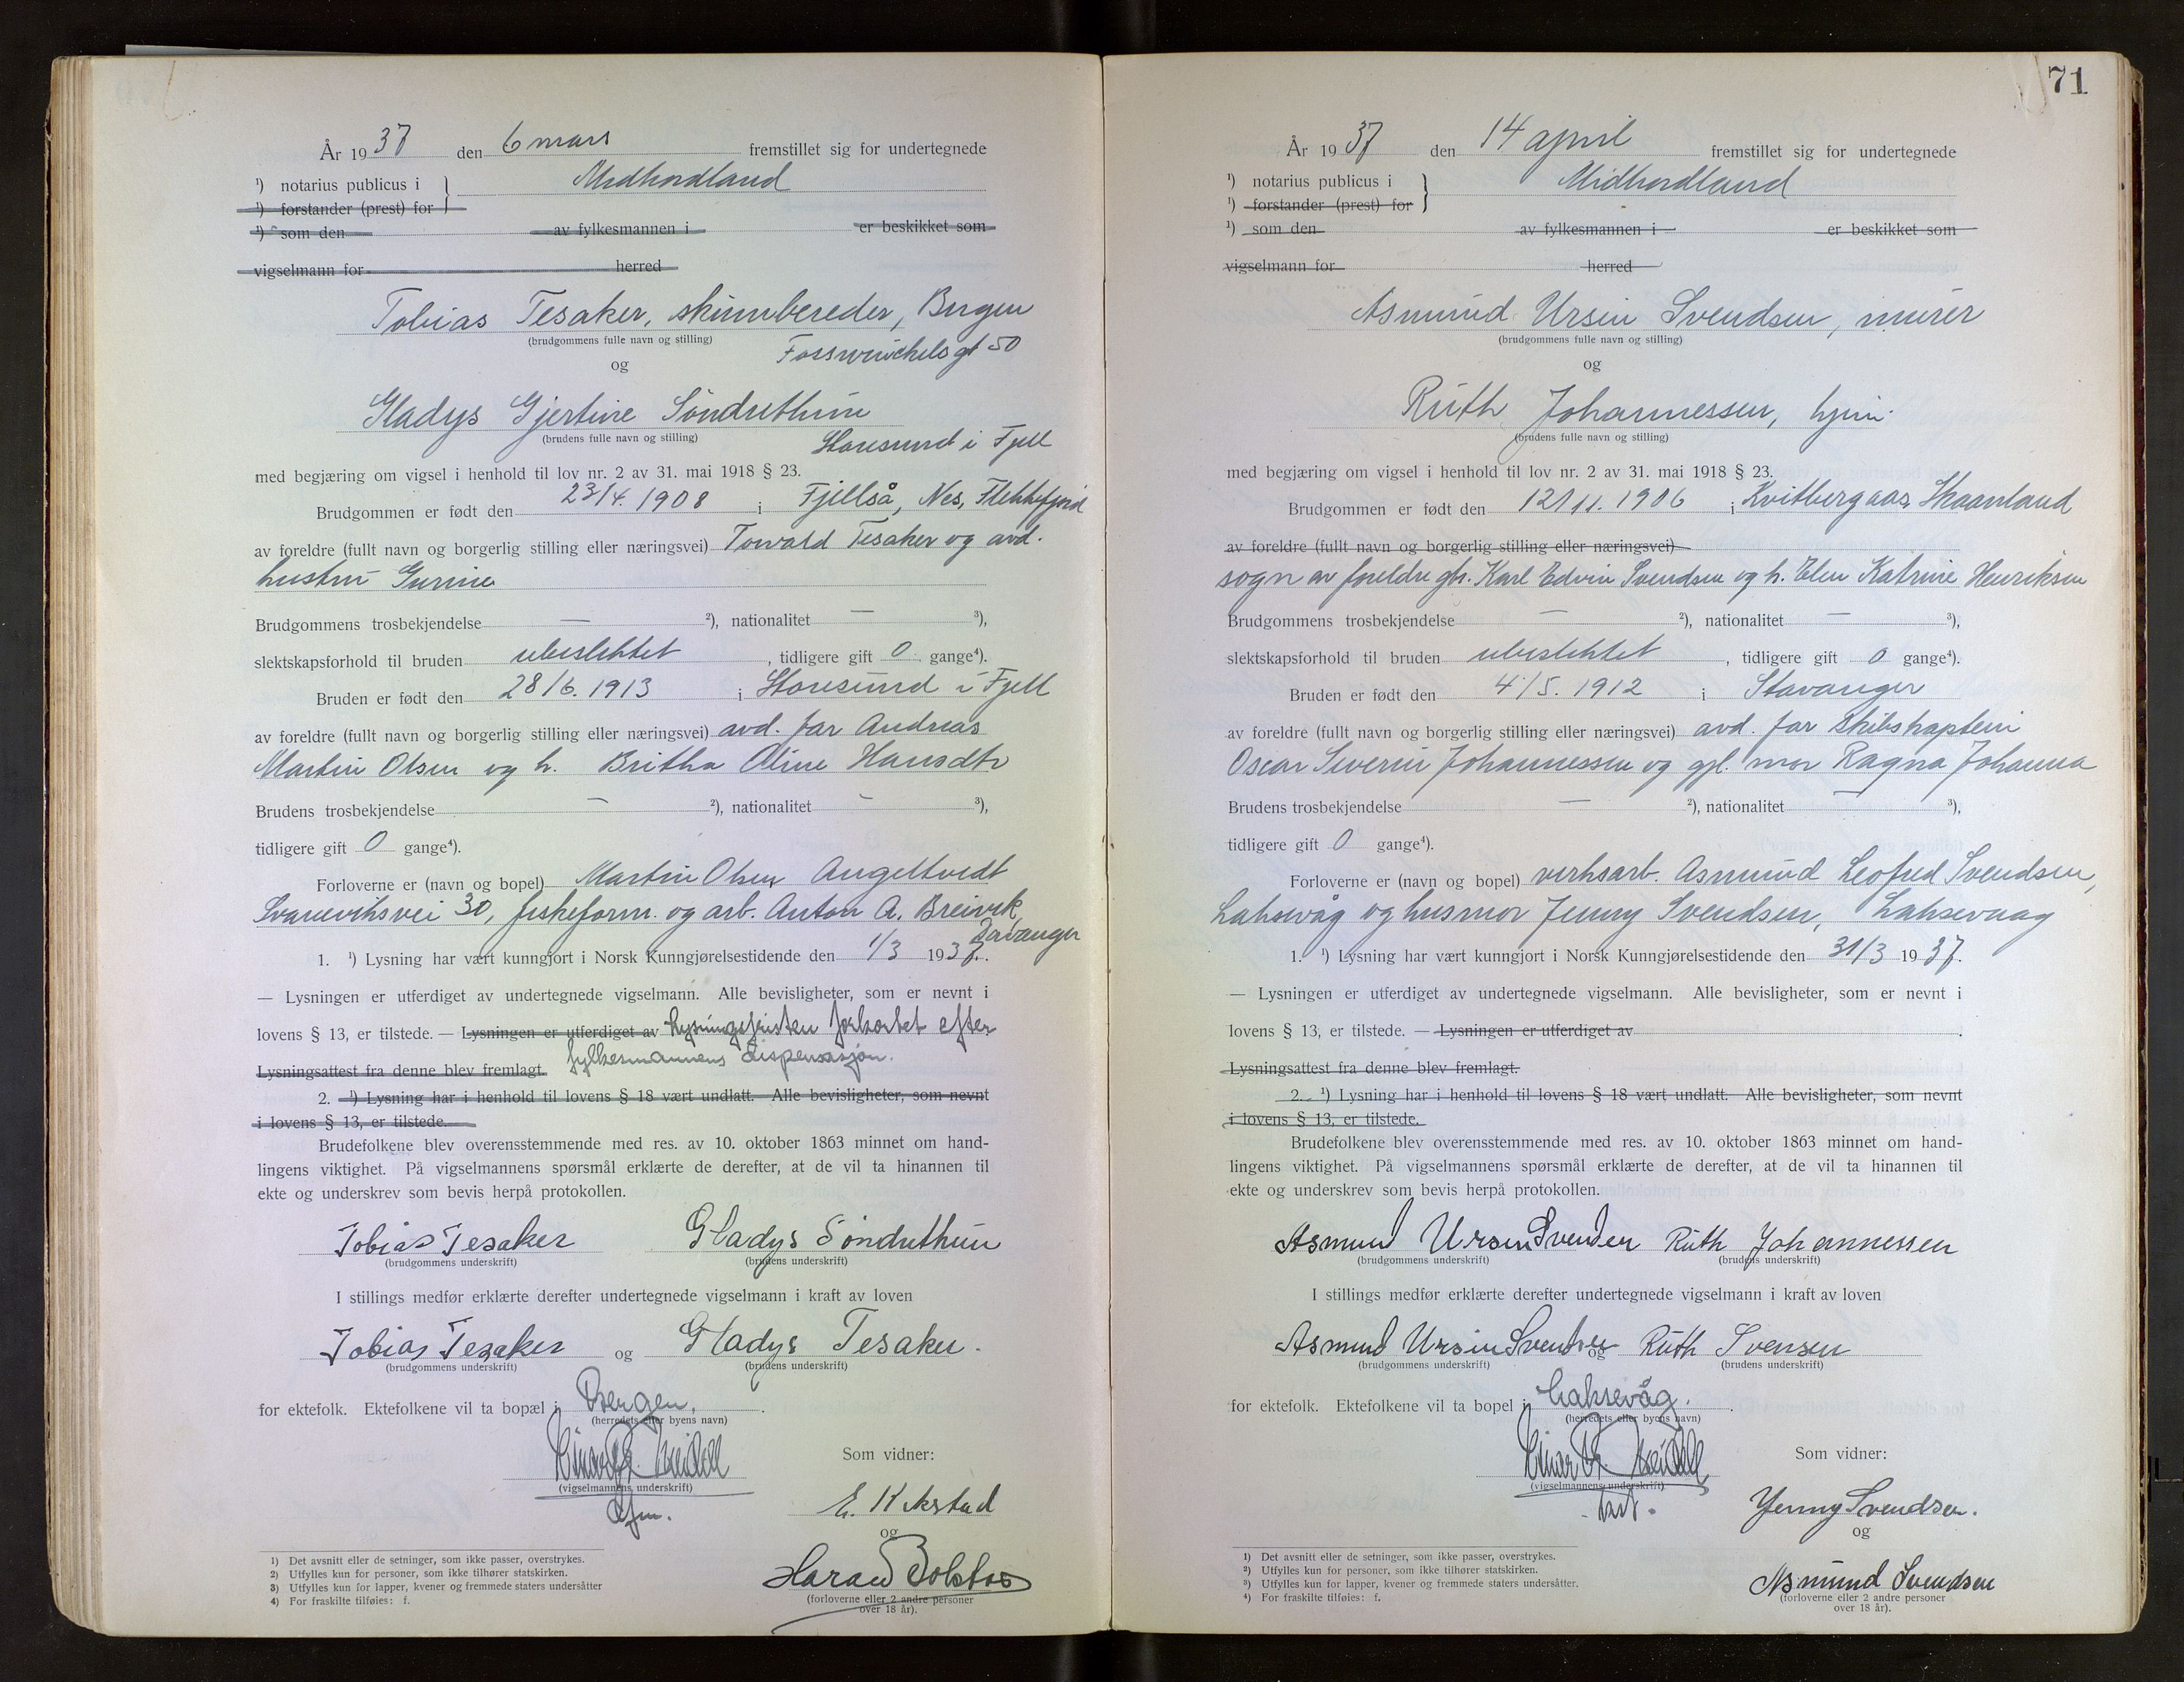 År 1937 den 6 mars fremstillet sig for undertegnede
¹) notarius publicus i } Midhordland
¹) forstander (prest) for
¹) som den av fylkesmannen i er beskikket som
vigselmann for herred
Tobias Tesaker, skinnbereder, Bergen
(brudgommens fulle navn og stilling)
Fosswinckelsgt 50
og
Gladys Gjertine Söndrethun
(brudens fulle navn og stilling)
Storesund i Fjell
med begjæring om vigsel i henhold til lov nr. 2 av 31. mai 1918 § 23.
Brudgommen er født den 23/4. 1908 i Fjellså, Nes, Flekkefjord
av foreldre (fullt navn og borgerlig stilling eller næringsvei) Torvald Tesaker og avd.
hustru Gurine
Brudgommens trosbekjendelse — ²), nationalitet — ³),
slektskapsforhold til bruden ubeslektet, tidligere gift 0 gange⁴).
Bruden er født den 28/6. 1913 i Storesund i Fjell
av foreldre (fullt navn og borgerlig stilling eller næringsvei) avd. far Andreas
Martin Olsen og h. Britha Oline Hansdtr
Brudens trosbekjendelse — ²), nationalitet - ³),
tidligere gift 0 gange⁴).
Forloverne er (navn og bopel) Martin Olsen Angeltvedt
Svaneviksvei 30, fiskeform. og arb. Anton A. Breivik,
Davanger
1. ¹) Lysning har vært kunngjort i Norsk Kunngjørelsestidende den 1/3 1937.
— Lysningen er utferdiget av undertegnede vigselmann. Alle bevisligheter, som er nevnt i
lovens § 13, er tilstede. — Lysningen er utferdiget av Lysningsfristen forkortet efter
Lysningsattest fra denne blev fremlagt. fylkesmannens dispensasjon.
2. ¹) Lysning har i henhold til lovens § 18 vært undlatt. Alle bevisligheter, som nevnt
i lovens § 13, er tilstede.
Brudefolkene blev overensstemmende med res. av 10. oktober 1863 minnet om hand-
lingens viktighet. På vigselmannens spørsmål erklærte de derefter, at de vil ta hinannen til
ekte og underskrev som bevis herpå protokollen.
Tobias Tesaker Gladys Söndrethun
(brudgommens underskrift) (brudens underskrift)
I stillings medfør erklærte derefter undertegnede vigselmann i kraft av loven
Tobias Tesaker og Gladys Tesaker.
(brudgommens underskrift) (brudens underskrift)
for ektefolk. Ektefolkene vil ta bopæl i Bergen.
(herredets eller byens navn)
Som vidner:
(vigselmannens underskrift)
E. Kikstad
og
Harald Bolstad
(forloverne eller 2 andre personer
over 18 år).
1) Det avsnitt eller de setninger, som ikke passer, overstrykes.
2) Utfylles kun for personer, som ikke tilhører statskirken.
3) Utfylles kun for lapper, kvener og fremmede staters undersåtter
4) For fraskilte tilføies: f.
71
År 1937 den 14 april fremstillet sig for undertegnede
¹) notarius publicus i } Midhordland
¹) forstander (prest) for
¹) som den av fylkesmannen i er beskikket som
vigselmann for herred
Asmund Ursin Svendsen, murer
(brudgommens fulle navn og stilling)
og
Ruth Johannessen, hjem.
(brudens fulle navn og stilling)
med begjæring om vigsel i henhold til lov nr. 2 av 31. mai 1918 § 23.
Brudgommen er født den 12/11. 1906 i Kvitbergaas, Skaanland
av foreldre (fullt navn og borgerlig stilling eller næringsvei)
sogn av foreldre gbr. Karl Edvin Svendsen og h. Elen Katrine Henriksen
Brudgommens trosbekjendelse — ²), nationalitet — ³),
slektskapsforhold til bruden ubeslektet, tidligere gift 0 gange⁴).
Bruden er født den 4/5. 1912 i Stavanger
av foreldre (fullt navn og borgerlig stilling eller næringsvei) avd. far skibskaptein
Oscar Severin Johannessen og gjl. mor Ragna Johanna
Brudens trosbekjendelse — ²), nationalitet — ³),
tidligere gift 0 gange⁴).
Forloverne er (navn og bopel) verksarb. Asmund Leofred Svendsen,
Laksevåg og husmor Jenny Svendsen, Laksevaag
1. ¹) Lysning har vært kunngjort i Norsk Kunngjørelsestidende den 31/3 1937.
— Lysningen er utferdiget av undertegnede vigselmann. Alle bevisligheter, som er nevnt i
lovens § 13, er tilstede. — Lysningen er utferdiget av
Lysningsattest fra denne blev fremlagt.
2. ¹) Lysning har i henhold til lovens § 18 vært undlatt. Alle bevisligheter, som nevnt
i lovens § 13, er tilstede.
Brudefolkene blev overensstemmende med res. av 10. oktober 1863 minnet om hand-
lingens viktighet. På vigselmannens spørsmål erklærte de derefter, at de vil ta hinannen til
ekte og underskrev som bevis herpå protokollen.
Asmund Ursin Svendsen Ruth Johannessen
(brudgommens underskrift) (brudens underskrift)
I stillings medfør erklærte derefter undertegnede vigselmann i kraft av loven
Asmund Ursin Svendsen og Ruth Svensen
(brudgommens underskrift) (brudens underskrift)
for ektefolk. Ektefolkene vil ta bopel i Laksevåg.
(herredets eller byens navn)
Som vidner:
(vigselmannens underskrift)
Yenny Svendsen.
og
Asmund Svendsen
(forloverne eller 2 andre personer
over 18 år).
1) Det avsnitt eller de setninger, som ikke passer, overstrykes.
2) Utfylles kun for personer, som ikke tilhører statskirken.
3) Utfylles kun for lapper, kvener og fremmede staters undersåtter.
4) For fraskilte tilføies: f.